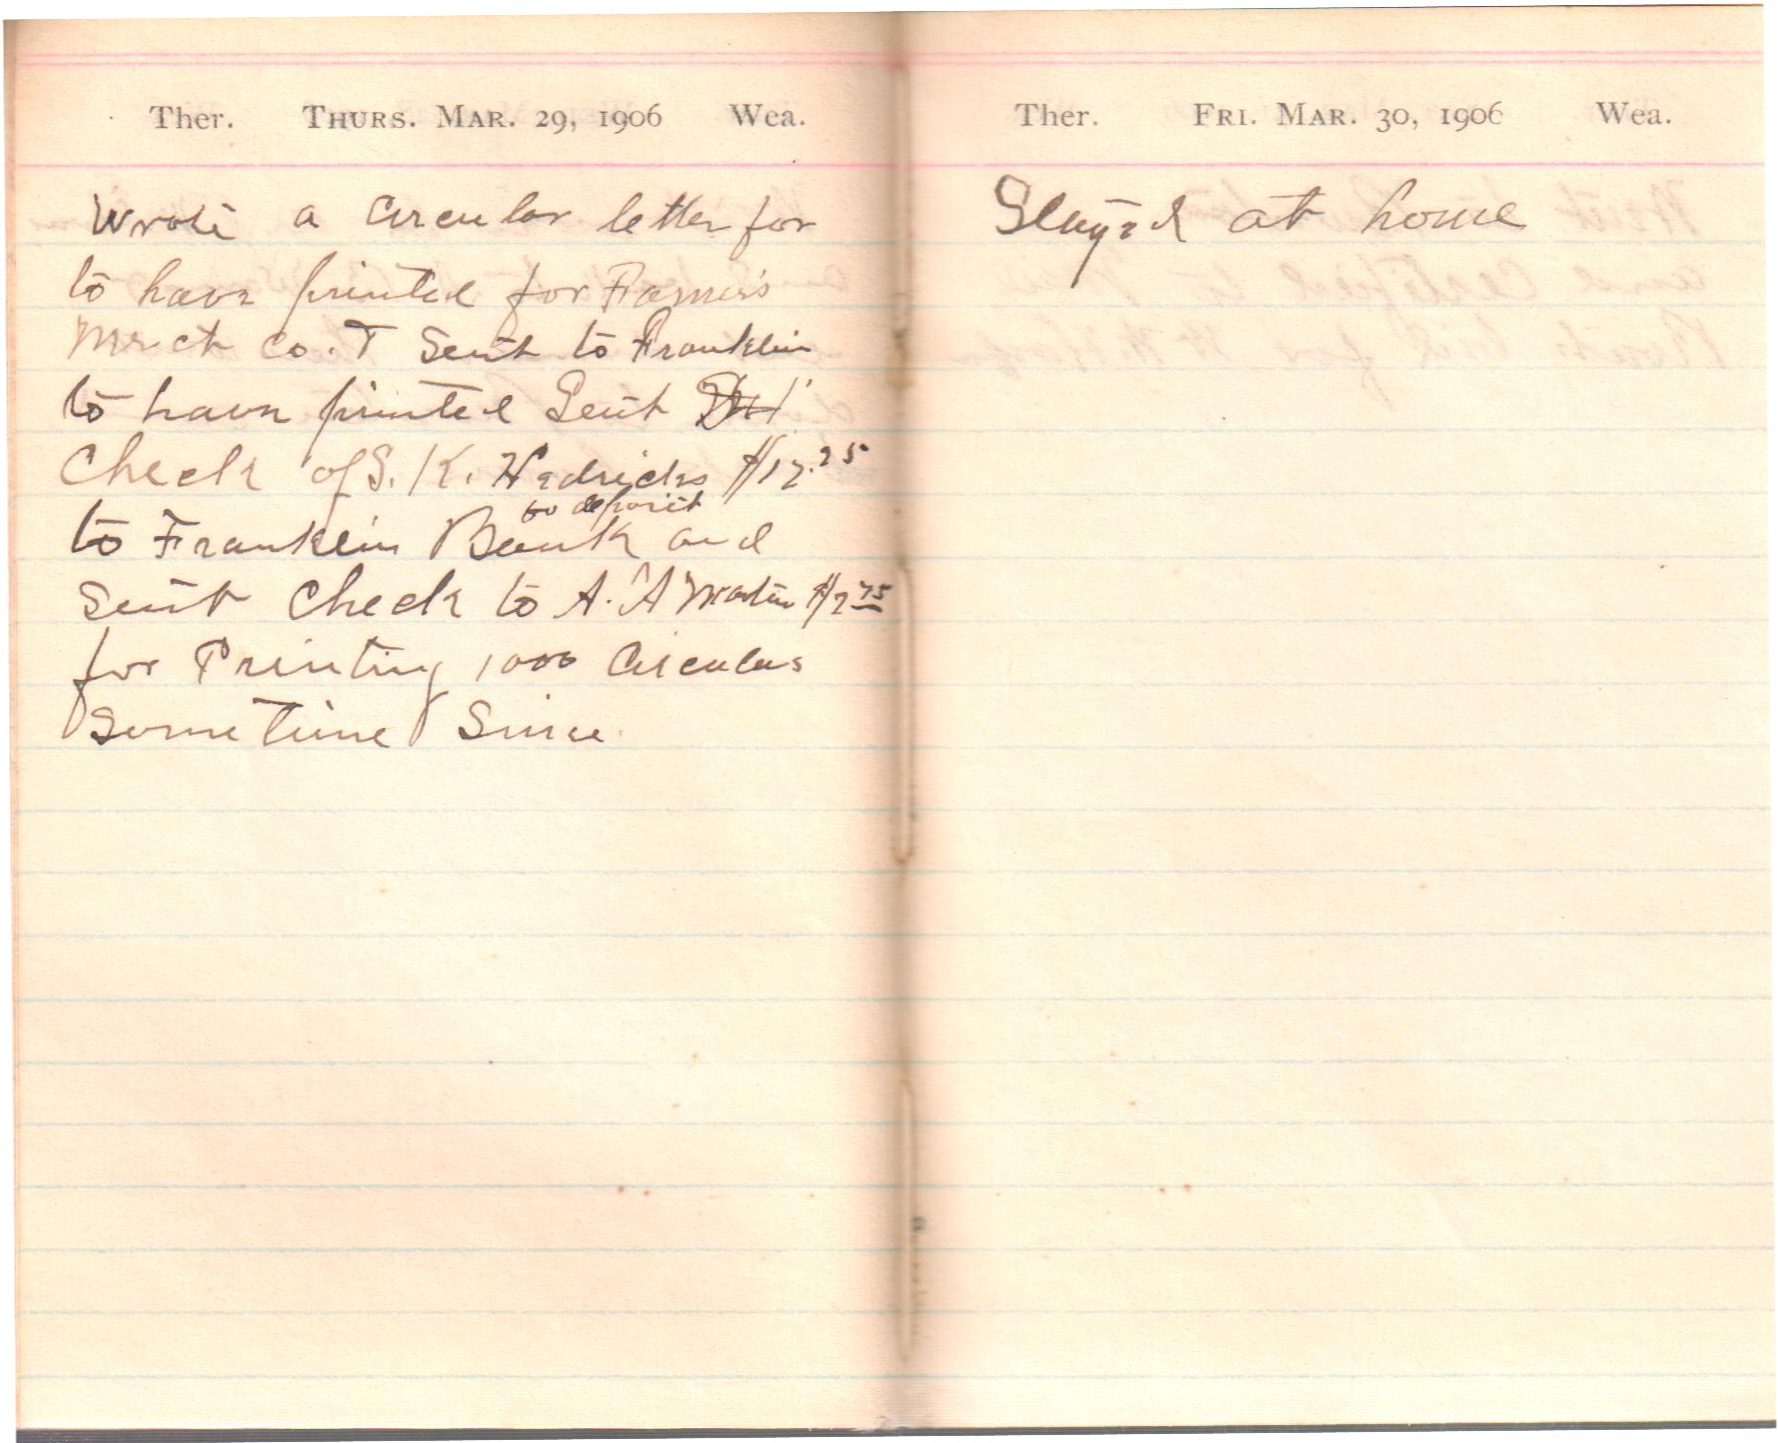 Ther. THURS. MAR. 29, 1906 Wea.
Wrote a circular letter for
to have printed for Farmer's
Merct Co. & Sent to Franklin
to have printed Sent
Check of S. K. Hedricks $17.25
to deposit
to Franklin Bank and
Sent Check to A. A Martin $2.75
for Printing 1000 Circulars
Sometime Since
Ther. FRI. MAR. 30, 1906 Wea.
Stayed at home